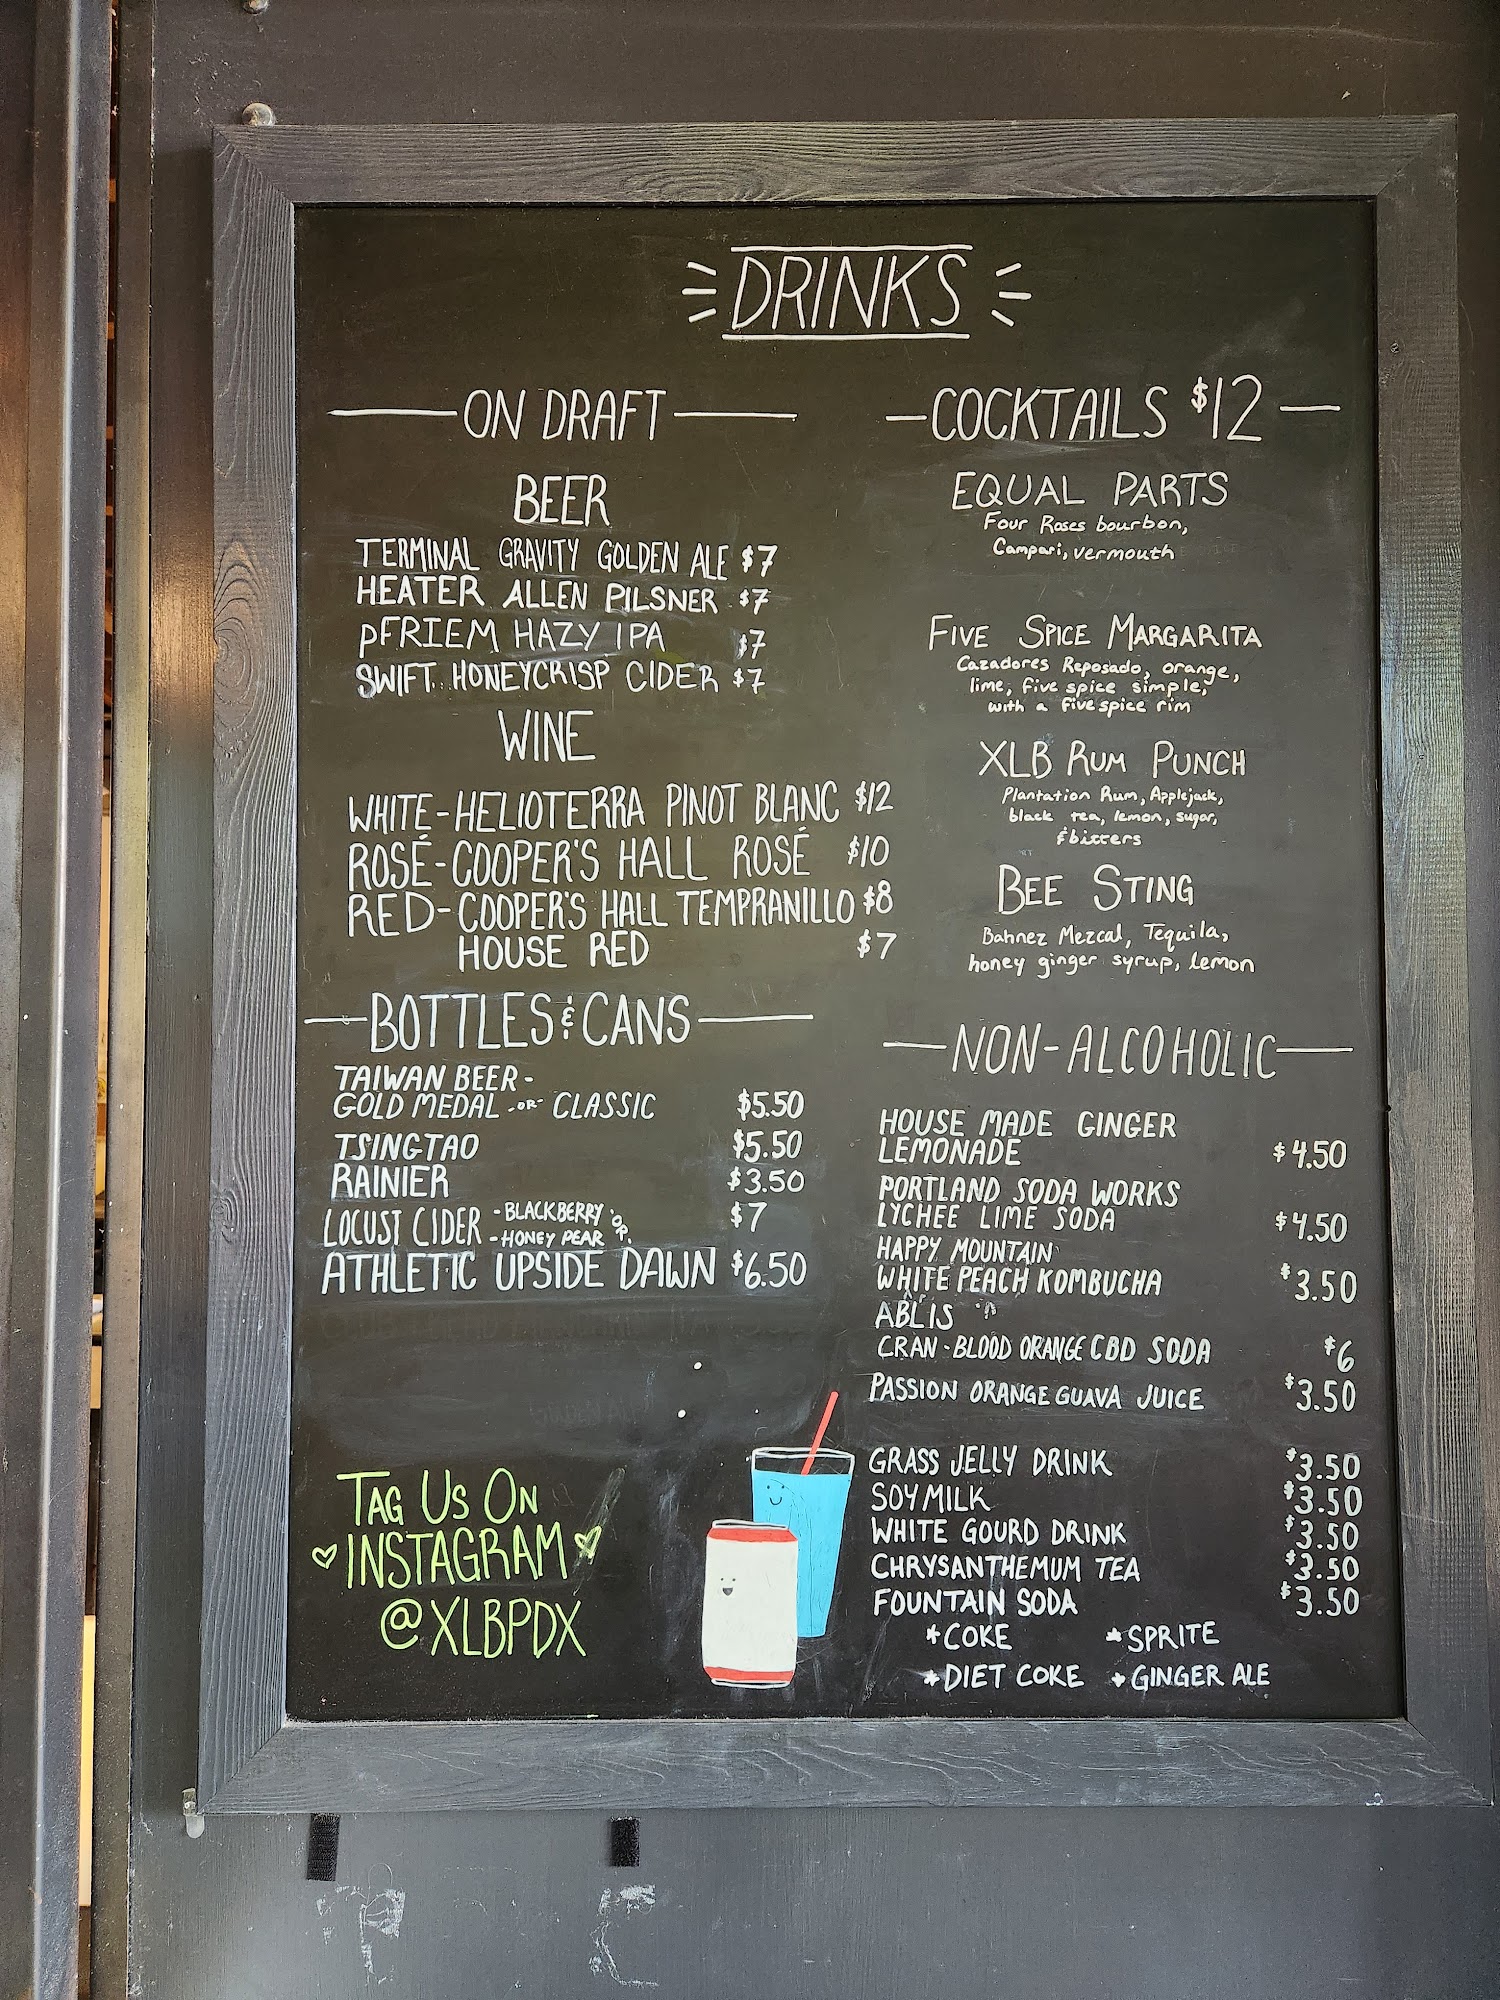 DRINKS
ON DRAFT
BEER
TERMINAL GRAVITY GOLDEN ALE $7
HEATER ALLEN PILSNER $7
PFRIEM HAZY IPA $7
SWIFT HONEYCRISP CIDER $7
WINE
WHITE-HELIOTERRA PINOT BLANC $12
ROSÉ-COOPER'S HALL ROSÉ $10
RED-COOPER'S HALL TEMPRANILLO $8
HOUSE RED $7
BOTTLES & CANS
TAIWAN BEER-
GOLD MEDAL -OR- CLASSIC $5.50
TSINGTAO $5.50
RAINIER $3.50
LOCUST CIDER -BLACKBERRY OR
-HONEY PEAR $7
ATHLETIC UPSIDE DAWN $6.50
TAG US ON
INSTAGRAM
@XLBPDX
COCKTAILS $12
EQUAL PARTS
Four Roses bourbon,
Campari, vermouth
FIVE SPICE MARGARITA
Cazadores Reposado, orange,
lime, five spice simple,
with a five spice rim
XLB RUM PUNCH
Plantation Rum, Applejack,
black tea, lemon, sugar,
& bitters
BEE STING
Bahnez Mezcal, Tequila,
honey ginger syrup, lemon
NON-ALCOHOLIC
HOUSE MADE GINGER
LEMONADE $4.50
PORTLAND SODA WORKS
LYCHEE LIME SODA $4.50
HAPPY MOUNTAIN
WHITE PEACH KOMBUCHA $3.50
ABLIS
CRAN-BLOOD ORANGE CBD SODA $6
PASSION ORANGE GUAVA JUICE $3.50
GRASS JELLY DRINK $3.50
SOY MILK $3.50
WHITE GOURD DRINK $3.50
CHRYSANTHEMUM TEA $3.50
FOUNTAIN SODA $3.50
*COKE *SPRITE
*DIET COKE *GINGER ALE